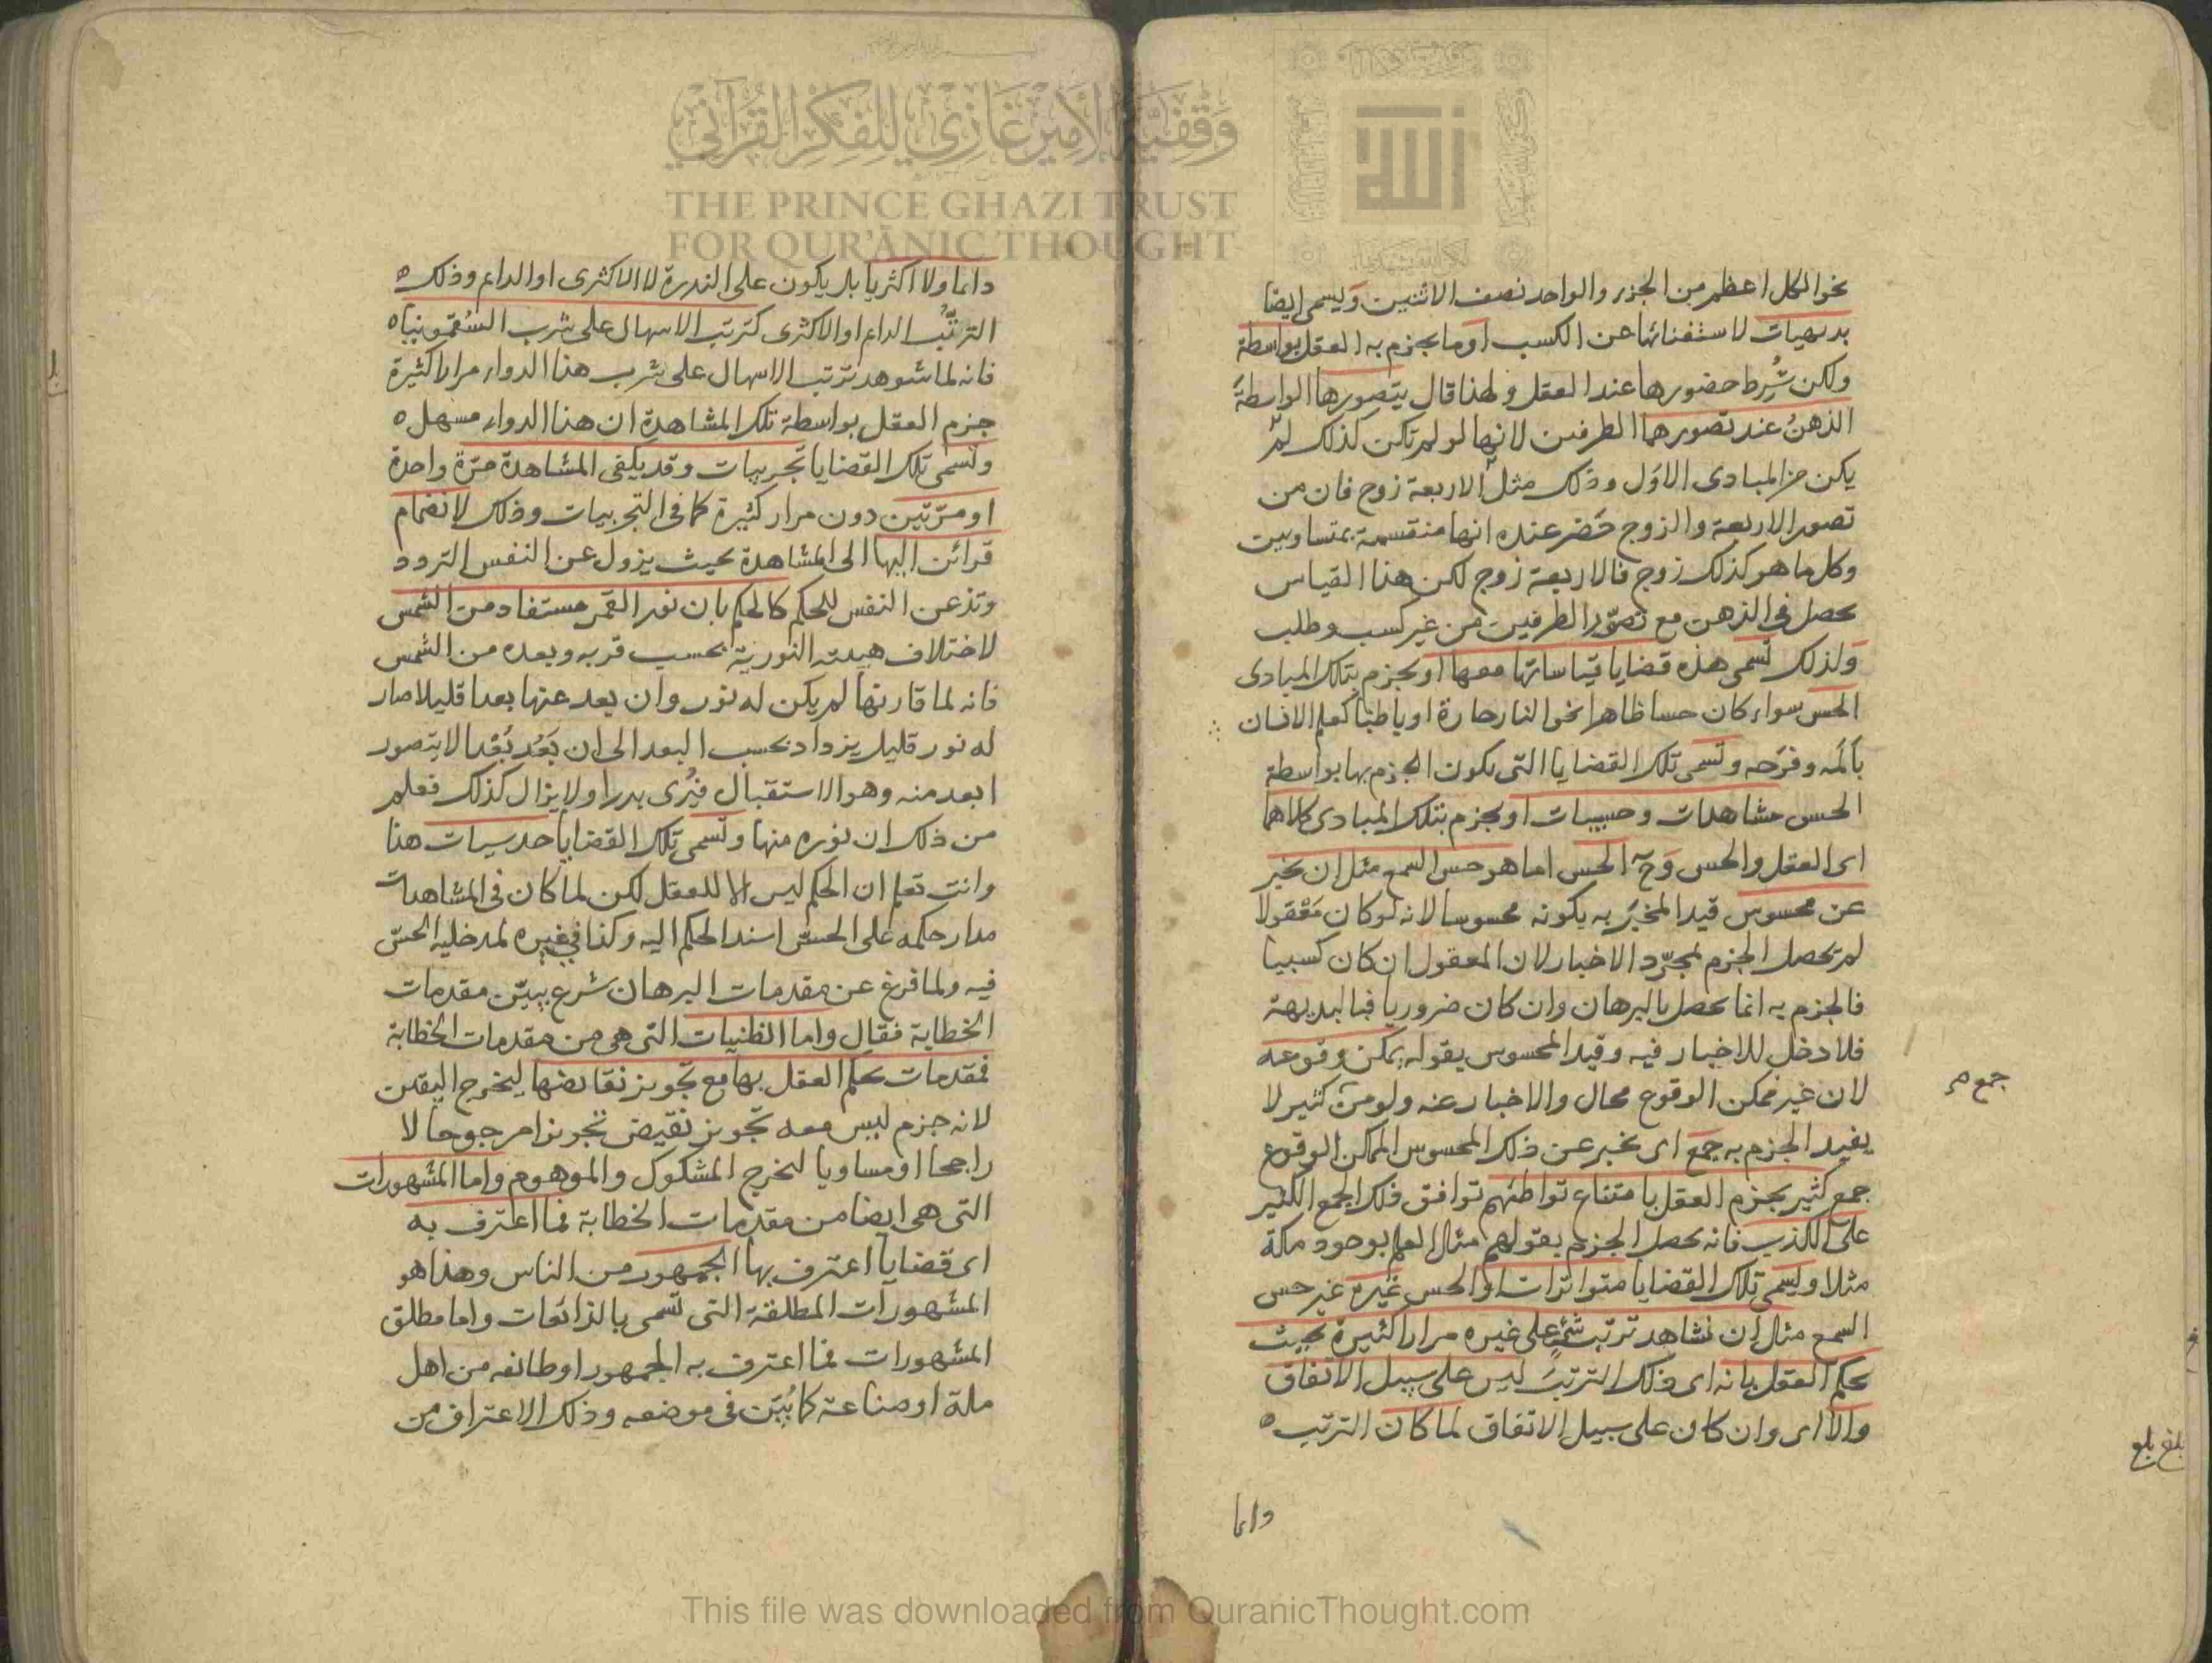 نحو الكل اعظم من الجزء والواحد نصف الاثنين وليسمى ايضا
بديهيات لاستغنائها عن الكسب او ما يجزم به العقل بواسطة
ولكن شُرِط حضورها عند العقل ولهذا قال يتصورها الواسطةَ
الذهنُ عند تصورهما الطرفين لانها لو لم تكن كذلك لم
يكن من المبادى الاوَل وذلك مثل الاربعة زوج فان من
تصور الاربعة والزوج حَضر عنده انها منقسمة بمتساويين
وكل ما هو كذلك زوج فالاربعة زوج لكن هذا القياس
يحصل فى الذهن مع تصوّر الطرفين من غير كسب وطلب
وَلذلك تسمى هذه قضايا قياساتها معها او يجزم بتلك المبادى
الحس سواء كان حسا ظاهرا نحو النار حارة او باطنا كعلم الانسان
بألمه وفرَحه وتسمى تلك القضايا التى يكون الجزم بها بواسطة
الحس مشاهدات وحسيات او يجزم بتلك المبادى كلاهما
اى العقل والحس وَح الحس اما هو حس السمع مثل ان يخبر
عن محسوس قيد المخبَر به بكونه محسوسا لانه لو كان مَعْقولا
لم يحصل الجزم بمجرّد الاخبار لان المعقول ان كان كسبيا
فالجزم به انما يحصل بالبرهان وان كان ضروريا فبالبديهة
فلا دخل للاخبار فيه وقيد المحسوس بقوله يمكن وقوعه
لان غير ممكن الوقوع محال والاخبار عنه ولو من كثير لا
جمع م
يفيد الجزم به جمع اى يخبر عن ذلك المحسوس الممكن الوقوع
جمع كثير يجزم العقل بامتناع تواطئهم توافق ذلك الجمع الكثير
على الكذب فانه يحصل الجزم بقولهم مثل العلم بوجود مكة
مثلا وليسمى تلك القضايا متواترات او الحس غيره غير حس
السمع مثل ان نشاهد ترتّب شئ على غيره مرارا كثيرة بحيث
يحكم العقل بانه اى ذلك الترتبَ ليس على سبيل الاتفاق
والا اى وان كان على سبيل الاتفاق لما كان الترتب
دايما
بلغ بلغ
دايما ولا اكثريا بل يكون على الندرة لا الاكثرى او الدايم وذلك
الترتّبُ الدايم او الاكثرى كترتب الاسهال على شرب السُقمونيا
فانه لما شوهد ترتب الاسهال على شرب هذا الدواء مرارا كثيرة
جزم العقل بواسطة تلك المشاهدة ان هذا الدواء مسهل
وتسمى تلك القضايا تجربيات وقد يكفى المشاهدة مَرّة واحدة
او مرّتين دون مرار كثيرة كما فى التجربيات وذلك لانضمام
قرائن اليها الى المشاهدة بحيث يزول عن النفس التردد
وتذعن النفس للحكم كالحكم بان نور القمر مستفاد من الشمس
لاختلاف هيئته النورية بحسب قربه وبعده من الشمس
فانه لما قارنها لم يكن له نور وان بعد عنها بعدا قليلا صار
له نور قليل يزداد بحسب البعد الى ان بَعُد بُعْدا لا يتصور
ابعد منه وهو الاستقبال فيُرى بدرا ولا يزال كذلك فعلم
من ذلك ان نوره منها وتسمى تلك القضايا حدسيات هذا
وانت تعلم ان الحكم ليس الا للعقل لكن لما كان فى المشاهدات
مدار حكمه على الحسّ اسند الحكم اليه وكذا فى غيره لمدخلية الحسّ
فيه ولما فرغ عن مقدمات البرهان شرع يبيّن مقدمات
الخطابة فقال واما الظنيات التى هى من مقدمات الخطابة
فمقدمات يحكم العقل بها مع تجويز نقايضها ليخرج اليقين
لانه جزم ليس معه تجويز نقيض تجويزا مرجوحا لا
راجحا او مساويا لخرج المشكوك والموهوم واما المشهورات
التى هى ايضا من مقدمات الخطابة فما اعترف به
اى قضايا اعترف بها الجمهور من الناس وهذا هو
المشهورات المطلقة التى تسمى بالذائعات واما مطلق
المشهورات فما اعترف به الجمهور او طائفه من اهل
ملة او صناعة كما بُيّن فى موضعه وذلك الاعتراف من
وقفية الأمير غازي للفكر القرآني
THE PRINCE GHAZI TRUST
FOR QUR'ĀNIC THOUGHT
This file was downloaded from QuranicThought.com